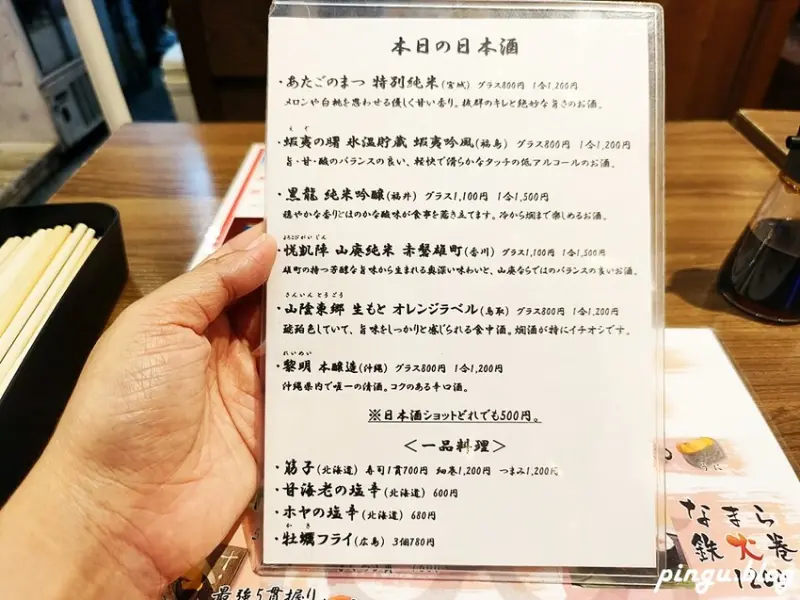 本日の日本酒
・あたごのまつ 特別純米(宮城) グラス800円 1合1,200円
メロンや白桃を思わせる優しく甘い香り。抜群のキレと絶妙な旨さのお酒。
えぞ
・蝦夷の曙 氷温貯蔵 蝦夷吟風(福島) グラス800円 1合1,200円
旨・甘・酸のバランスの良い、軽快で清らかなタッチの低アルコールのお酒。
・黒龍 純米吟醸(福井) グラス1,100円 1合1,500円
穏やかな香りとほのかな酸味が食事を惹き立てます。冷から燗まで楽しめるお酒。
よろこびがいじん
・悦凱陣 山廃純米 赤磐雄町(香川) グラス1,100円 1合1,500円
雄町の持つ芳醇な旨味から生まれる奥深い味わいと、山廃ならではのバランスの良いお酒。
さんいんとうごう
・山陰東郷 生もと オレンジラベル(鳥取) グラス800円 1合1,200円
琥珀色していて、旨味をしっかりと感じられる食中酒。燗酒が特にイチオシです。
れいめい
・黎明 本醸造(沖縄) グラス800円 1合1,200円
沖縄県内で唯一の清酒。コクのある辛口酒。
※日本酒ショットどれでも500円。
<一品料理>
・筋子(北海道) 寿司1貫700円 細巻1,200円 つまみ1,200円
・甘海老の塩辛(北海道) 600円
・ホヤの塩辛(北海道) 680円
かき
・牡蠣フライ(広島) 3個780円
うに
なまら
鉄火巻
最強5貫握り
pingu.blog